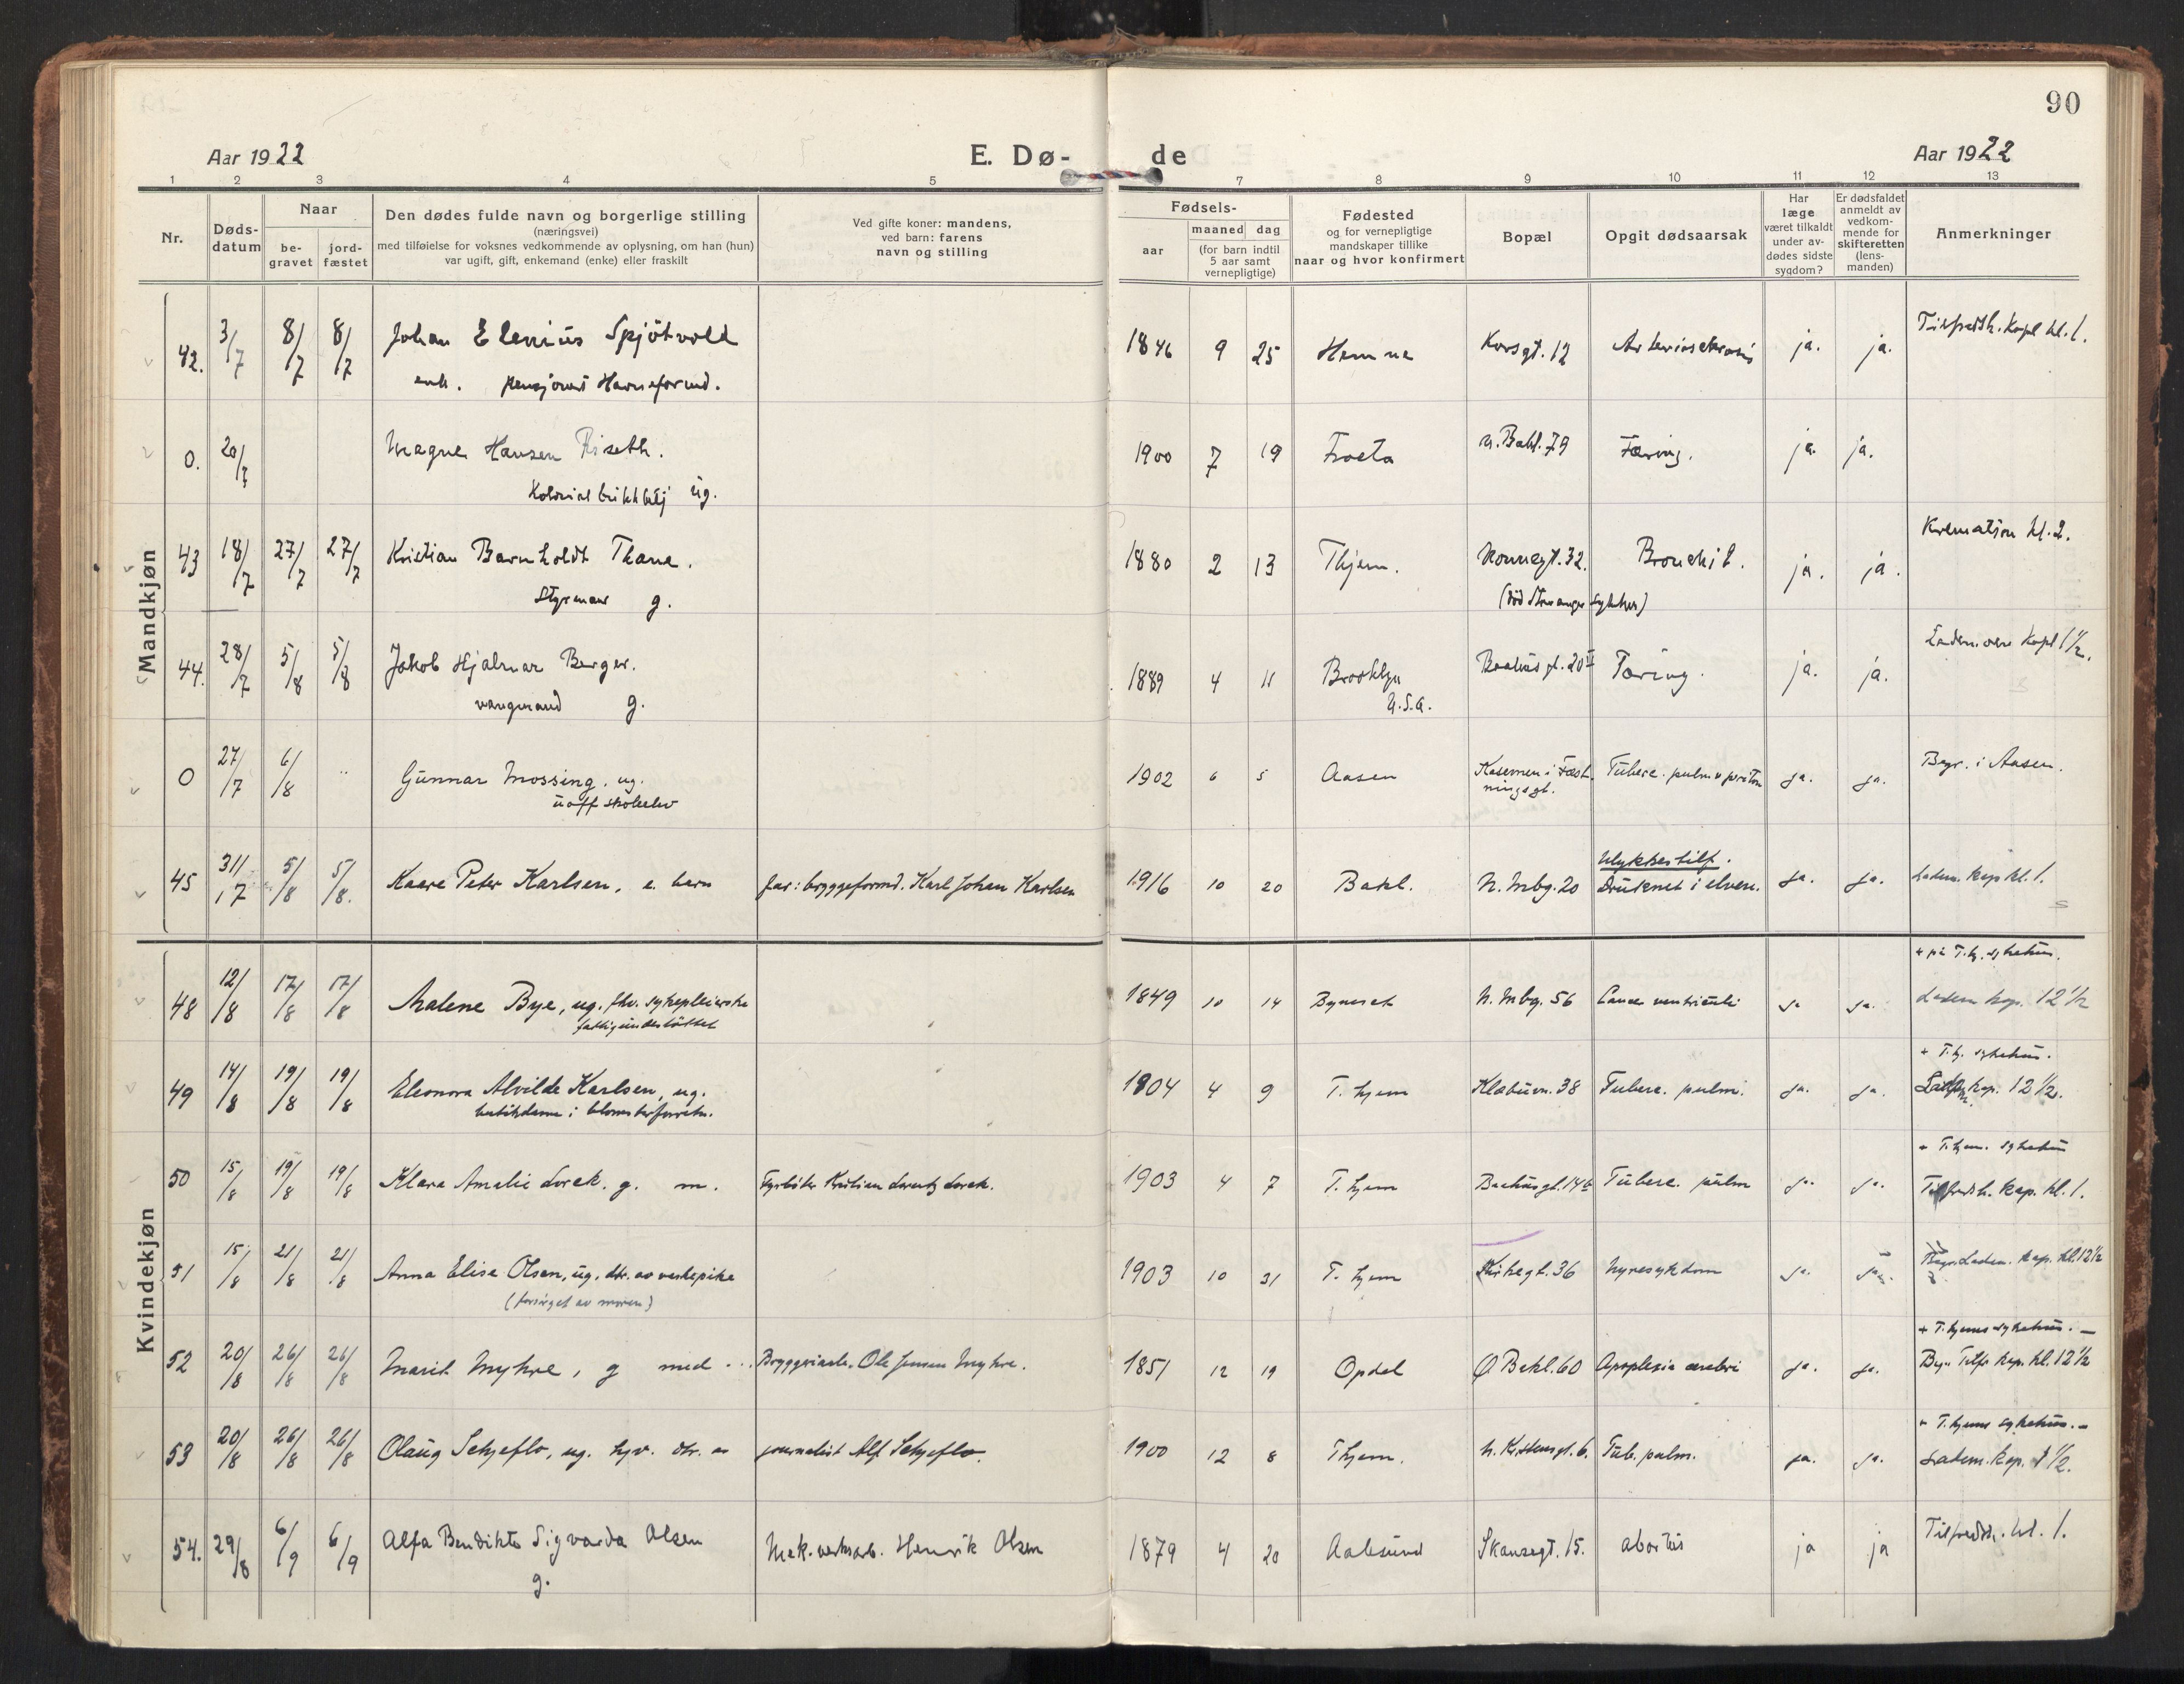 90
Aar 1922 E. Dø- de Aar 1922
1 2 3 4 5 7 8 9 10 11 12 13
Nr.
Døds-
datum
Naar
be-
gravet
jord-
fæstet
Den dødes fulde navn og borgerlige stilling
(næringsvei)
med tilføielse for voksnes vedkommende av oplysning, om han (hun)
var ugift, gift, enkemand (enke) eller fraskilt
Ved gifte koner: mandens,
ved barn: farens
navn og stilling
Fødsels-
aar
maaned dag
(for barn indtil
5 aar samt
vernepligtige)
Fødested
og for vernepligtige
mandskaper tillike
naar og hvor konfirmert
Bopæl
Opgit dødsaarsak
Har
læge
været tilkaldt
under av-
dødes sidste
sygdom?
Er dødsfaldet
anmeldt av
vedkom-
mende for
skifteretten
(lens-
manden)
Anmerkninger
Mandkjøn
42. 3/7 8/7 8/7 Johan Elenius Spjötvold 1846 9 25 Hemne Korsgt. 12 Arteriosclerosis ja. ja. Tilfredsh. Kapl kl. 1.
enk. pensjonert Havneformd.
0. 20/7 Magne Hansen Riseth. 1900 7 19 Frosta N. Bakl. 79 Tæring. ja. ja.
ug.
43 18/7 27/7 27/7 Kristian Barnholdt Thane. 1880 2 13 Thjem. Nonnegt. 32. Bronchit. ja. ja. Kremation kl. 2.
Styrmann g. (död Stavanger sykehus)
44. 28/7 5/8 5/8 Jakob Hjalmar Berger. 1889 4 11 Brooklyn Baahusgt. 20 II Tæring. ja. ja. Lademoens Kapl 1 1/2.
vangmand g. U.S.A.
0 27/7 6/8 .. Gunnar Mossing. ug. 1902 6 5 Aasen Kasernen i Fæst- Tuberc. pulm & periton ja. ja. Begr. i Aasen.
uoff skoleelev ningsgt.
45 31/7 5/8 5/8. Kaare Peter Karlsen, e. barn far: bryggeformd. Karl Johan Karlsen 1916 10 20 Bakl. N. Mbg. 20 Ulykkestilf.
Druknet i elven. ja. ja. Ladem. kap kl. 1.
Kvindekjøn
+ på T.hj. sykehus.
48 12/8 17/8 17/8 Malene Bye, ug. fhv. sykepleierske 1849 10 14 Byneset N. Mbg. 56 Cancer ventriculi ja ja. Ladem kap. 12 1/2
fattigunderstöttet
+ T.hj. sykehus.
49 14/8 19/8 19/8 Eleonora Alvilde Karlsen, ug. 1904 4 9 T. hjem Klæbuvn. 38 Tuberc. pulm. ja. ja. Ladem kap. 12 1/2.
butikdame i blomsterforretn.
+ T.hjem. sykehus
50 15/8 19/8 19/8 Klara Amalie Lorck. g. m. Fyrböter Kristian Lorentz Lorck. 1903 4 7 T. hjem Baahusgt. 14b Tuberc. pulm ja. ja. Tilfredsh. kap. kl. 1.
51 15/8 21/8 21/8 Anna Elise Olsen, ug. dtr. av vaskepike 1903 10 31 T. hjem Kirkegt. 36 Nyresykdom ja. ja. Begr. Ladem. kap. kl. 12 1/2
(forsörget av moren)
+ T.hjems sykehus. —
52 20/8 26/8 26/8 Marit Myhre, g med ... Bryggeriarb. Ole Jensen Myhre. 1851 12 19 Opdal Ø. Bakl. 60 Apoplexia cerebri ja. ja. Begr. Tilfr kap. kl. 12 1/2
+ T.hjems sykehus. —
53 20/8 26/8 26/8 Olaug Schjeflo, ug. hjv. dtr. av journalist Alf Schjeflo. 1900 12 8 Thjem. N. Kristensgt. 6. Tub. pulm. ja. ja. Ladem. kap. 1 1/2.
54. 29/8 6/9 6/9 Alfa Bendikte Sigvarda Olsen Mek. verksarb. Henrik Olsen 1879 4 20 Aalesund Skansegt. 15. abortus ja ja Tilfredsh. kl. 1.
g.